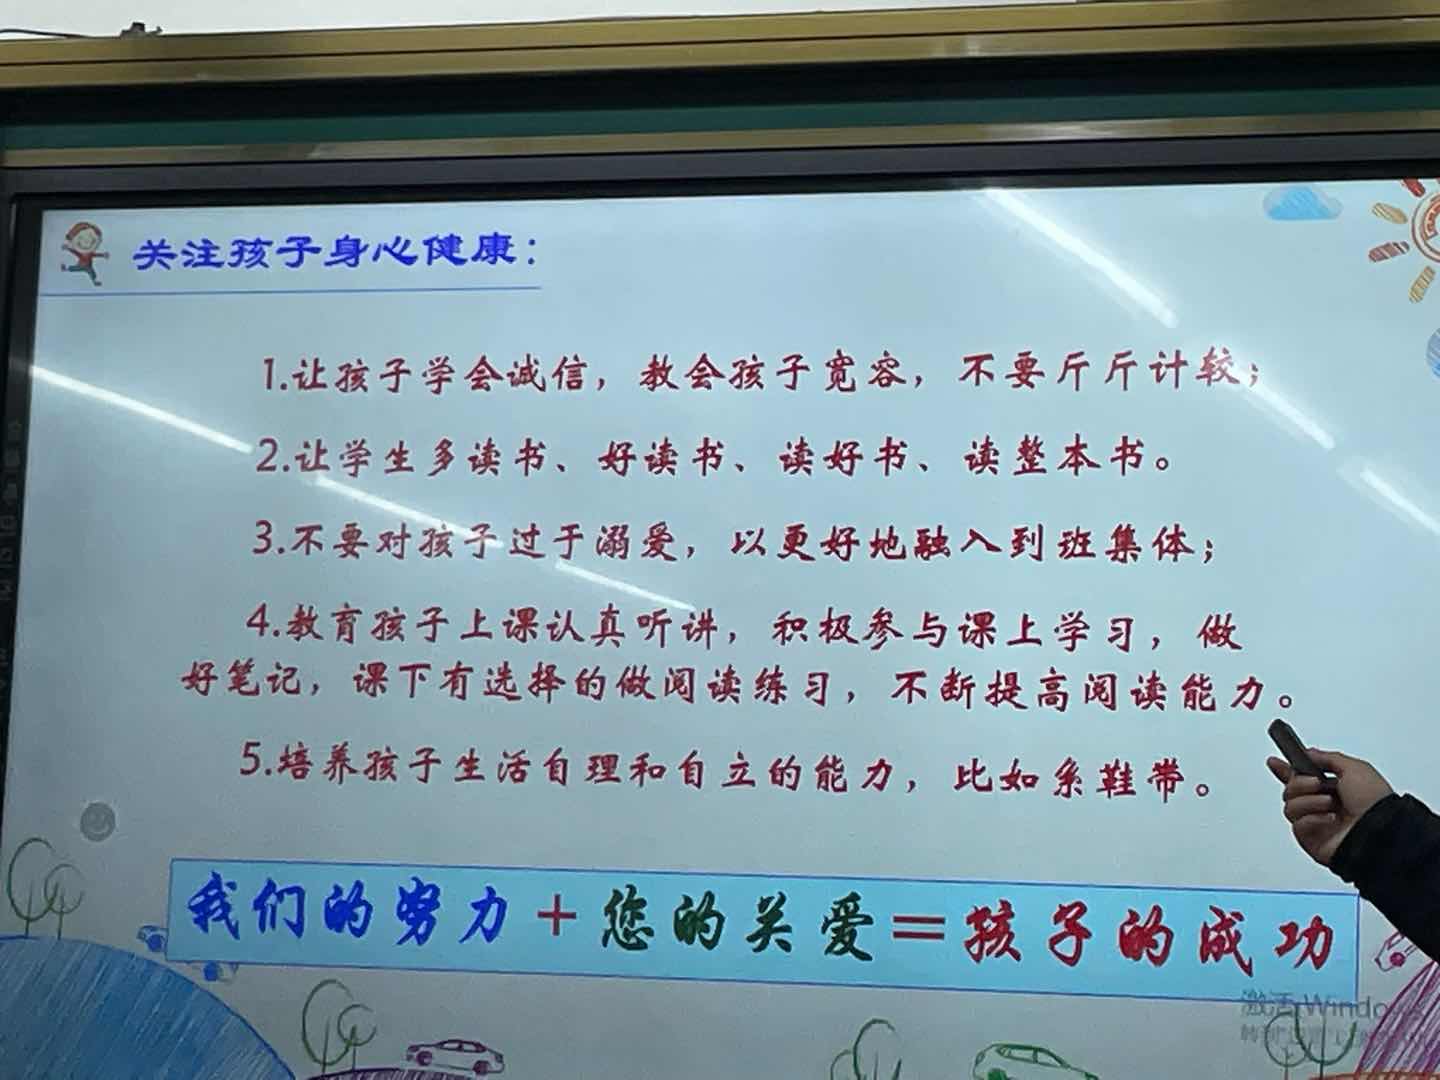 关注孩子身心健康：
1.让孩子学会诚信，教会孩子宽容，不要斤斤计较；
2.让学生多读书、好读书、读好书、读整本书。
3.不要对孩子过于溺爱，以更好地融入到班集体；
4.教育孩子上课认真听讲，积极参与课上学习，做
好笔记，课下有选择的做阅读练习，不断提高阅读能力。
5.培养孩子生活自理和自立的能力，比如系鞋带。
我们的努力+您的关爱=孩子的成功
激活 Windows